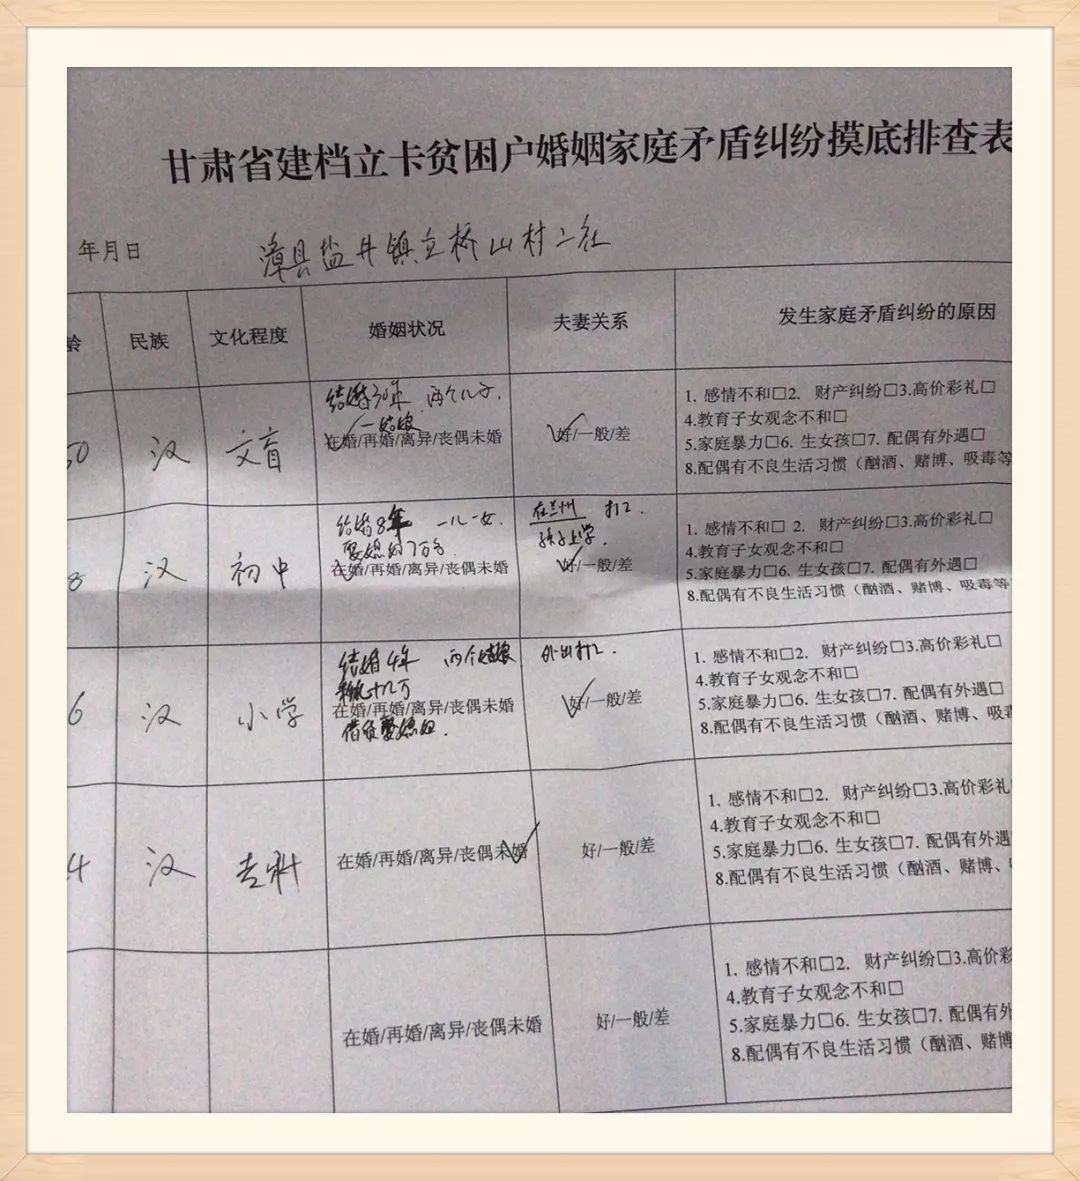 甘肃省建档立卡贫困户婚姻家庭矛盾纠纷摸底排查表
年月日 漳县盐井镇立桥山村二社
龄 民族 文化程度 婚姻状况 夫妻关系 发生家庭矛盾纠纷的原因
50 汉 文盲
结婚30年 两个儿子.
一姑娘
在婚/再婚/离异/丧偶未婚
好/一般/差
1. 感情不和□2. 财产纠纷□3.高价彩礼□
4.教育子女观念不和□
5.家庭暴力□6. 生女孩□7. 配偶有外遇□
8.配偶有不良生活习惯（酗酒、赌博、吸毒等
8 汉 初中
结婚8年 一儿一女.
娶媳妇7万多
在婚/再婚/离异/丧偶未婚
在兰州 打工.
孩子上学.
好/一般/差
1. 感情不和□ 2. 财产纠纷□3.高价彩礼□
4.教育子女观念不和□
5.家庭暴力□6. 生女孩□7. 配偶有外遇□
8.配偶有不良生活习惯（酗酒、赌博、吸毒等
6 汉 小学
结婚4年 两个姑娘
十几万
在婚/再婚/离异/丧偶未婚
借贷娶媳妇.
外出打工.
好/一般/差
1. 感情不和□2. 财产纠纷□3.高价彩礼□
4.教育子女观念不和□
5.家庭暴力□6. 生女孩□7. 配偶有外遇□
8.配偶有不良生活习惯（酗酒、赌博、吸毒
4 汉 专科
在婚/再婚/离异/丧偶未婚
好/一般/差
1. 感情不和□2. 财产纠纷□3.高价彩礼
4.教育子女观念不和□
5.家庭暴力□6. 生女孩□7. 配偶有外遇
8.配偶有不良生活习惯（酗酒、赌博、
在婚/再婚/离异/丧偶未婚
好/一般/差
1. 感情不和□2. 财产纠纷□3.高价彩
4.教育子女观念不和□
5.家庭暴力□6. 生女孩□7. 配偶有外
8.配偶有不良生活习惯（酗酒、赌博